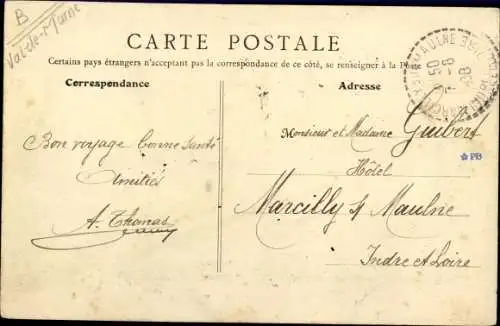 B
Val-de-Marne
CARTE POSTALE
Certains pays étrangers n'acceptant pas la correspondance de ce côté, se renseigner à la Poste
Correspondance
Adresse
Bon voyage bonne santé
Amitiés
A. Thomas
Monsieur et Madame Guibert
Hôtel
Marcilly s/ Maulne
Indre et Loire
PB